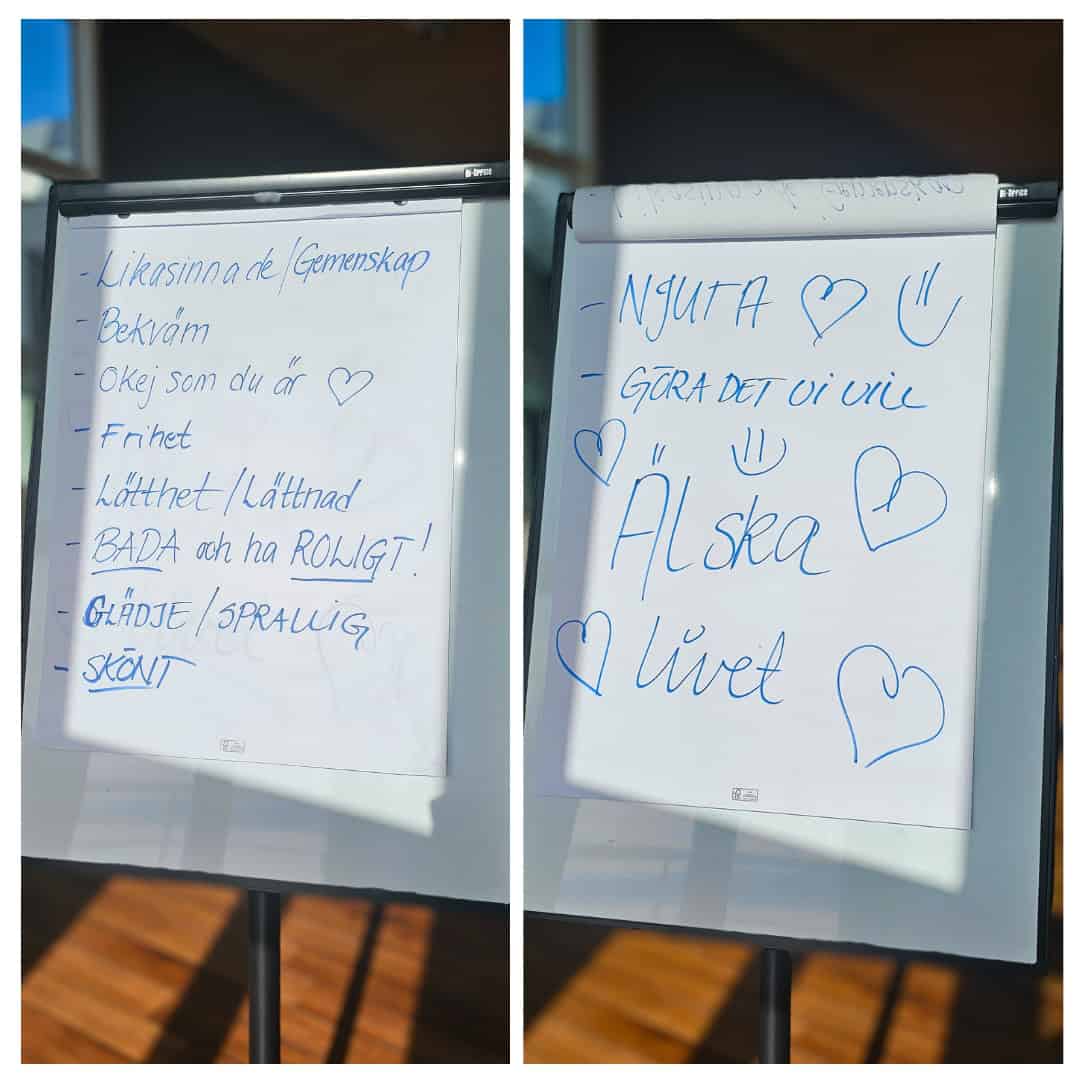 Bi-Office
- Likasinnade/Gemenskap
- Bekväm
- Okej som du är
- Frihet
- Lätthet/Lättnad
- BADA och ha ROLIGT!
- GLÄDJE/SPRALLIG
- SKÖNT
Bi-Office
Likasinnade Gemenskap
- NJUTA
- GÖRA DET Vi Vill
Älska
livet